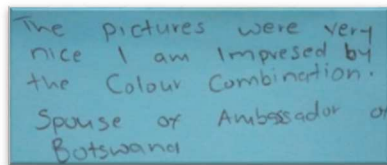 The pictures were very
nice I am Impresed by
the Colour Combination.
Spouse of Ambassador of
Botswana